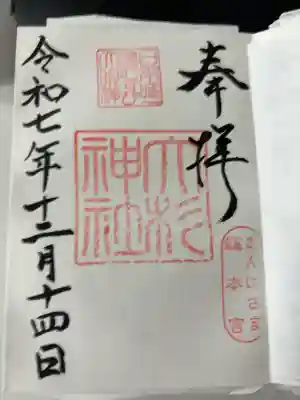 奉拝
大杉
神社
あんばさま
総本宮
令和七年十二月十四日